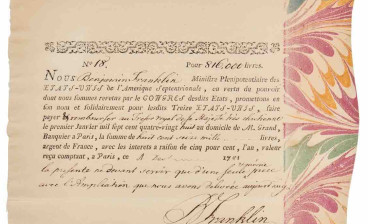 N° 18. Pour 816,000 livres.
NOUS Benjamin Franklin Ministre Plenipotentiaire des
ETATS-UNIS de l'Amerique Septentrionale, en vertu du pouvoir
dont nous sommes revetus par le CONGRES desdits Etats, promettons en
son nom et solidairement pour lesdits Treize ETATS-UNIS, faire
payer & rembourser au Trésor royal de Sa Majesté très chrétienne
le premier Janvier mil sept cent quatre-vingt huit au domicile de M. Grand,
Banquier à Paris, la somme de huit cent seize mille livres,
argent de France, avec les interets a raison de cinq pour cent, l'an, valeur
reçu comptant, a Paris, ce 1781
la presente ne devant servir que d'une seule
avec l'Ampliation que nous avons delivrée aujourd'huy
B Franklin